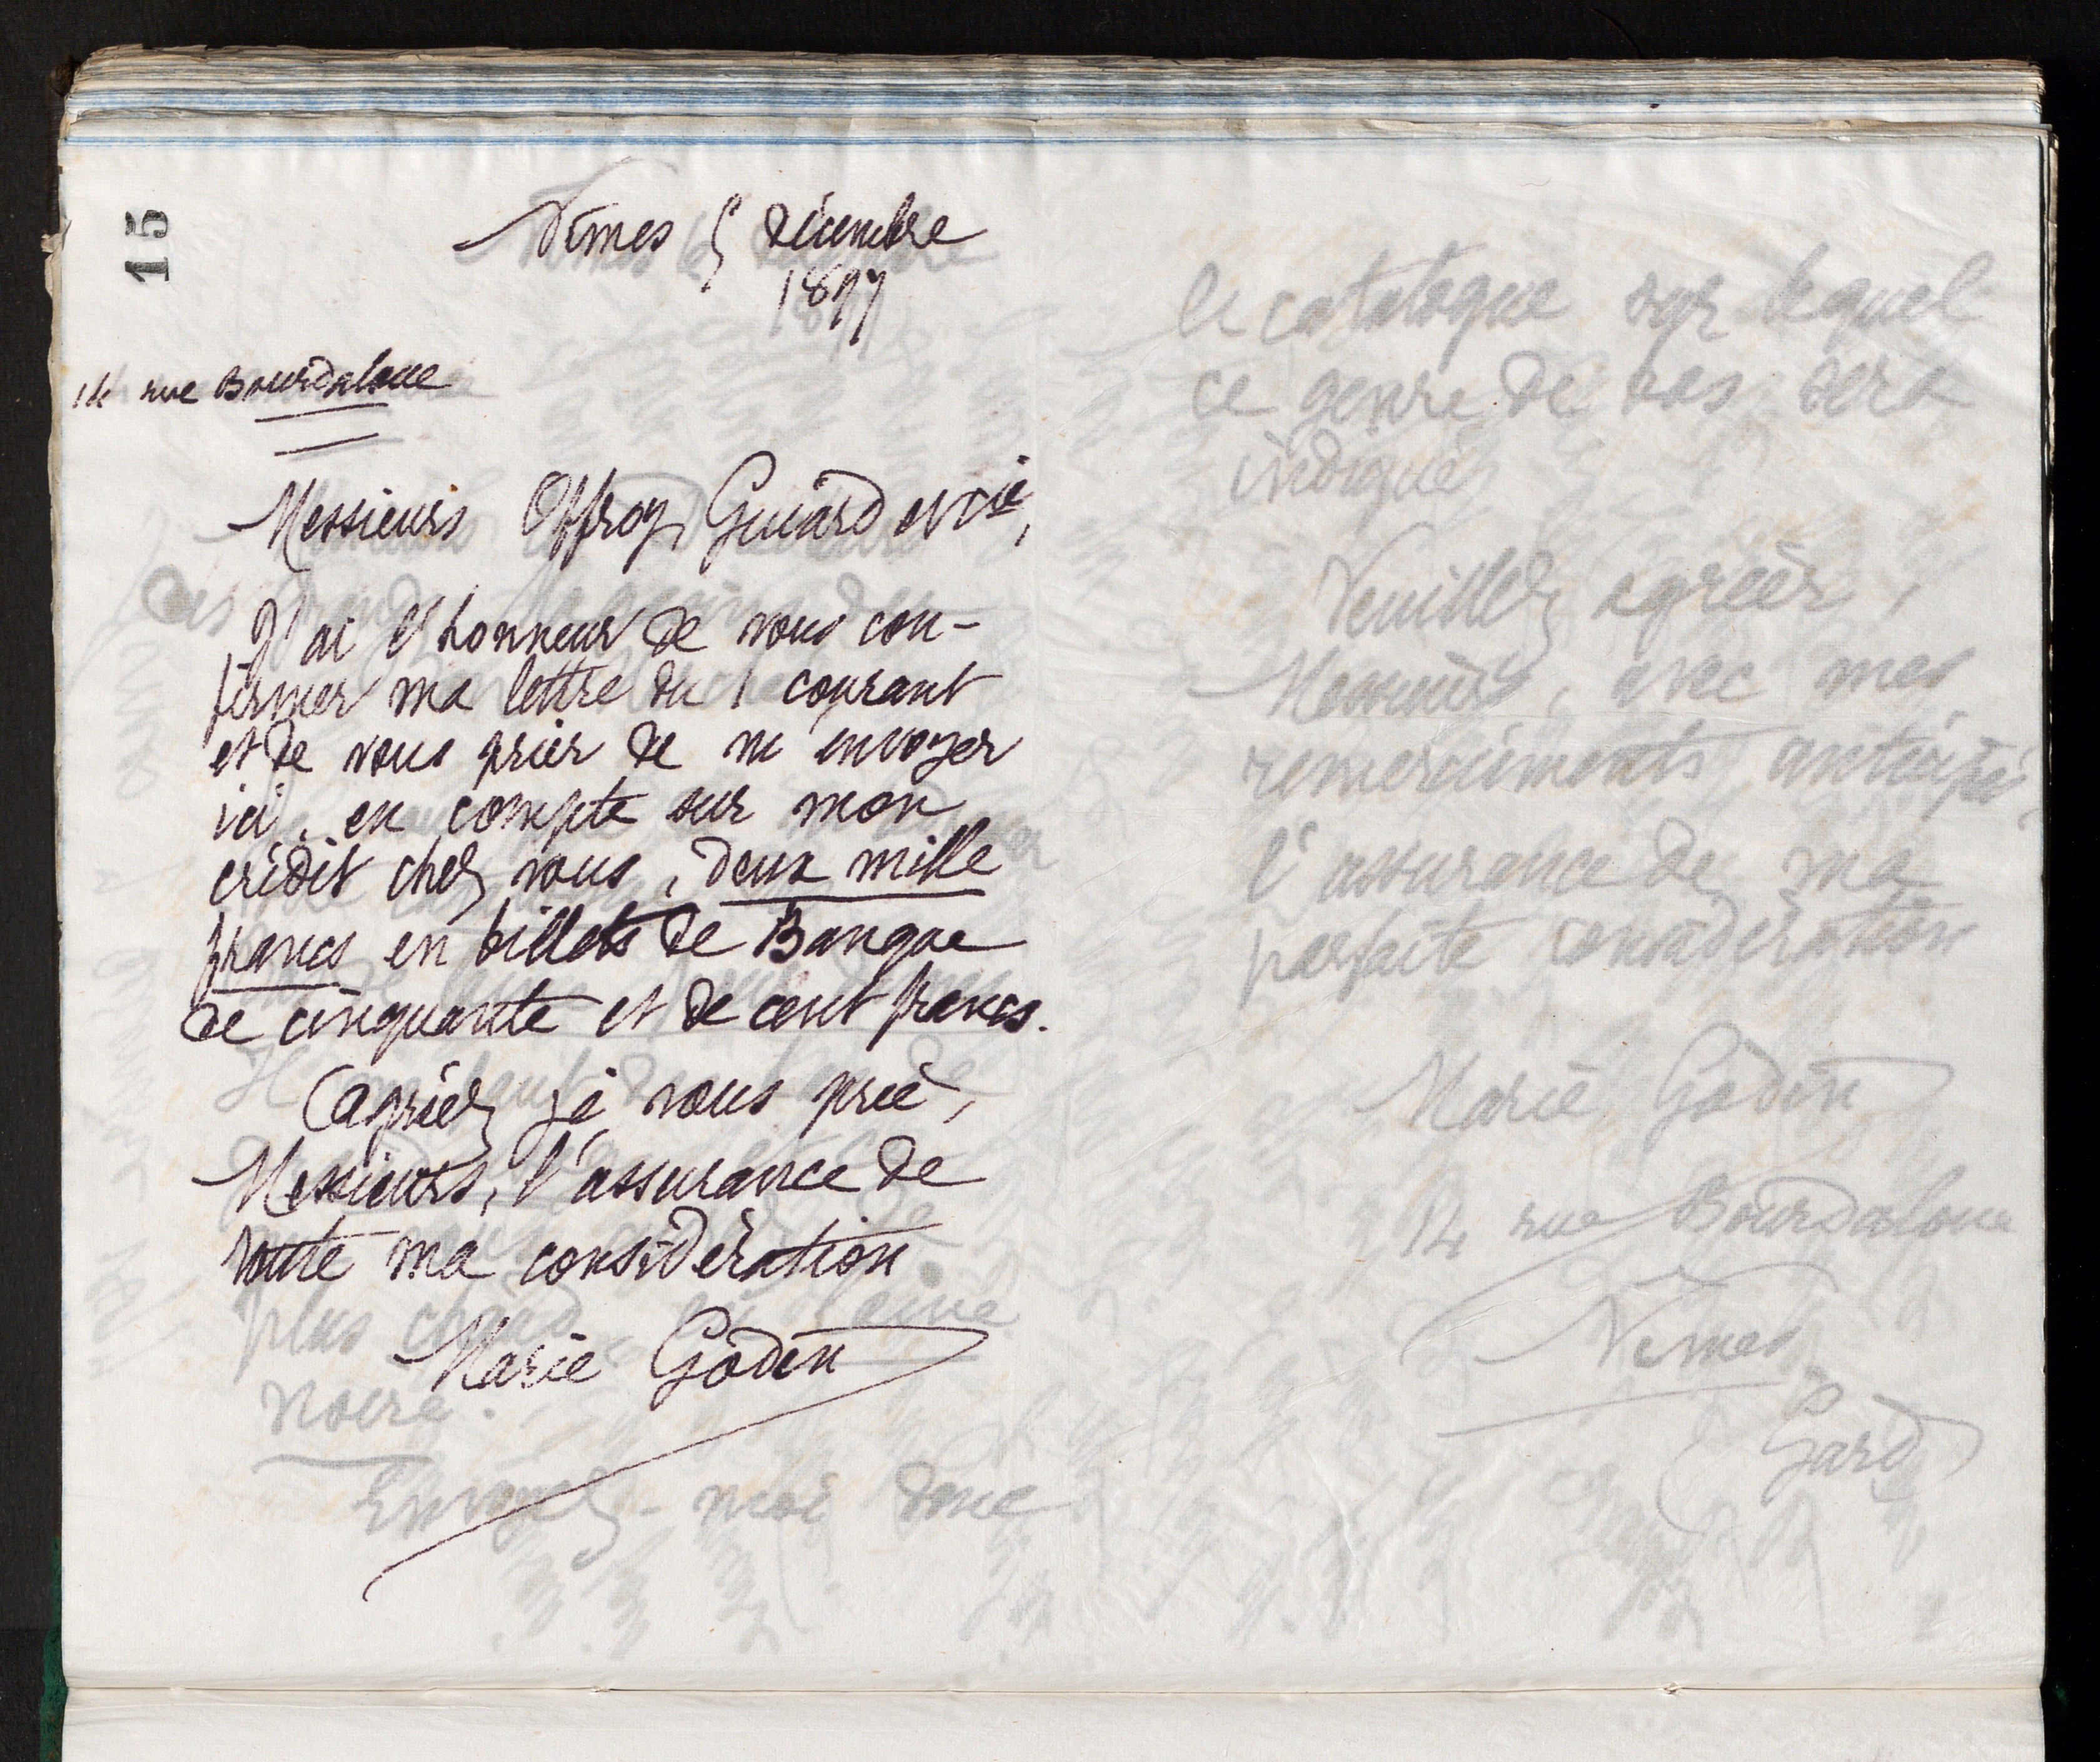 15
Nîmes 5 décembre
1897
14 rue Bourdaloue
Messieurs Offroy Guiard et Cie,
J'ai l'honneur de vous con-
firmer ma lettre du 1 courant
et de vous prier de m'envoyer
ici, en compte sur mon
crédit chez vous, deux mille
francs en billets de Banque
de cinquante et de cent francs.
Agréez je vous prie,
Messieurs, l'assurance de
toute ma considération
Marie Godin
plus chaud
noire.
Envoyez-moi donc
le catalogue sur lequel
ce genre de bas sera
indiqué
Veuillez agréer,
Messieurs, avec mes
remerciements anticipés
l'assurance de ma
parfaite considération
Marie Godin
14 rue Bourdaloue
Nîmes
Gard